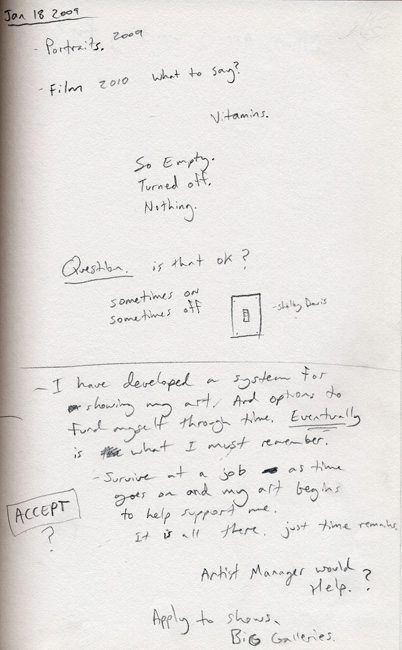 Jan 18 2009
- Portraits. 2009
- Film 2010 What to say?
Vitamins.
So Empty.
Turned off.
Nothing.
Question. is that ok?
sometimes on
sometimes off
- Shelby Davis
- I have developed a system for
showing my art. And options to
fund myself through time. Eventually
is what I must remember.
- Survive at a job as time
goes on and my art begins
to help support me.
It is all there. just time remains
ACCEPT
?
Artist Manager would
Help. ?
Apply to shows.
BiG Galleries.